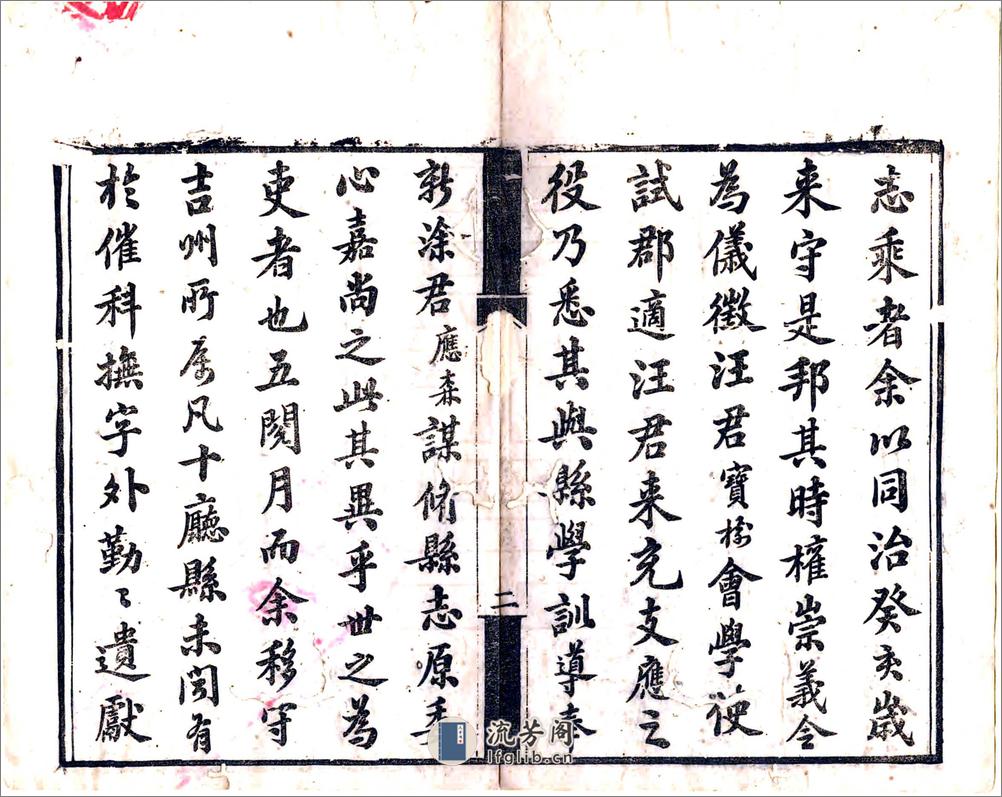 志乘者余以同治癸亥歲
来守是邦其時權崇義令
為儀徵汪君寶樹會學使
試郡適汪君来充支應之
役乃悉其與縣學訓導奉
二
新涂君應森謀脩縣志原委
心嘉尚之此其異乎世之為
吏者也五閱月而余移守
吉州所属凡十廳縣未聞有
於催科撫字外勤〻遺獻
流芳阁
lfglib.cn